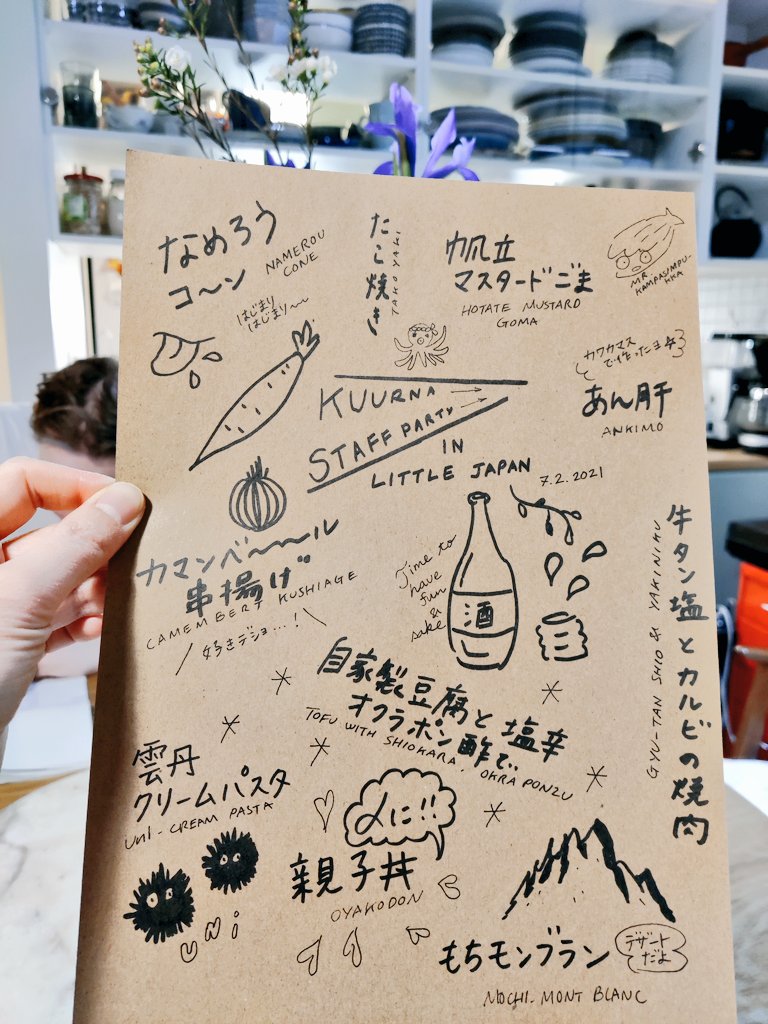 なめろう
コ〜ン
NAMEROU
CONE
はじまり
はじまり〜〜
たこ焼き
TAKO YAKI
帆立
マスタードごま
HOTATE MUSTARD
GOMA
MR.
KAMPASIMPU-
KKA
カワカマス
で作ったヨ☆
あん肝
ANKIMO
KUURNA
STAFF PARTY
IN
LITTLE JAPAN
7.2.2021
カマンベ〜〜ル
串揚げ
CAMEMBERT KUSHIAGE
好きデショ…!
Time to
have
fun
&
sake
酒
牛タン塩とカルビの焼肉
GYU-TAN SHIO & YAKINIKU
自家製豆腐と塩辛
オクラポン酢で
TOFU WITH SHIOKARA, OKRA PONZU
雲丹
クリームパスタ
UNI-CREAM PASTA
UNI
〆に!!
親子丼
OYAKODON
もちモンブラン
デザート
だよ
MOCHI-MONT BLANC